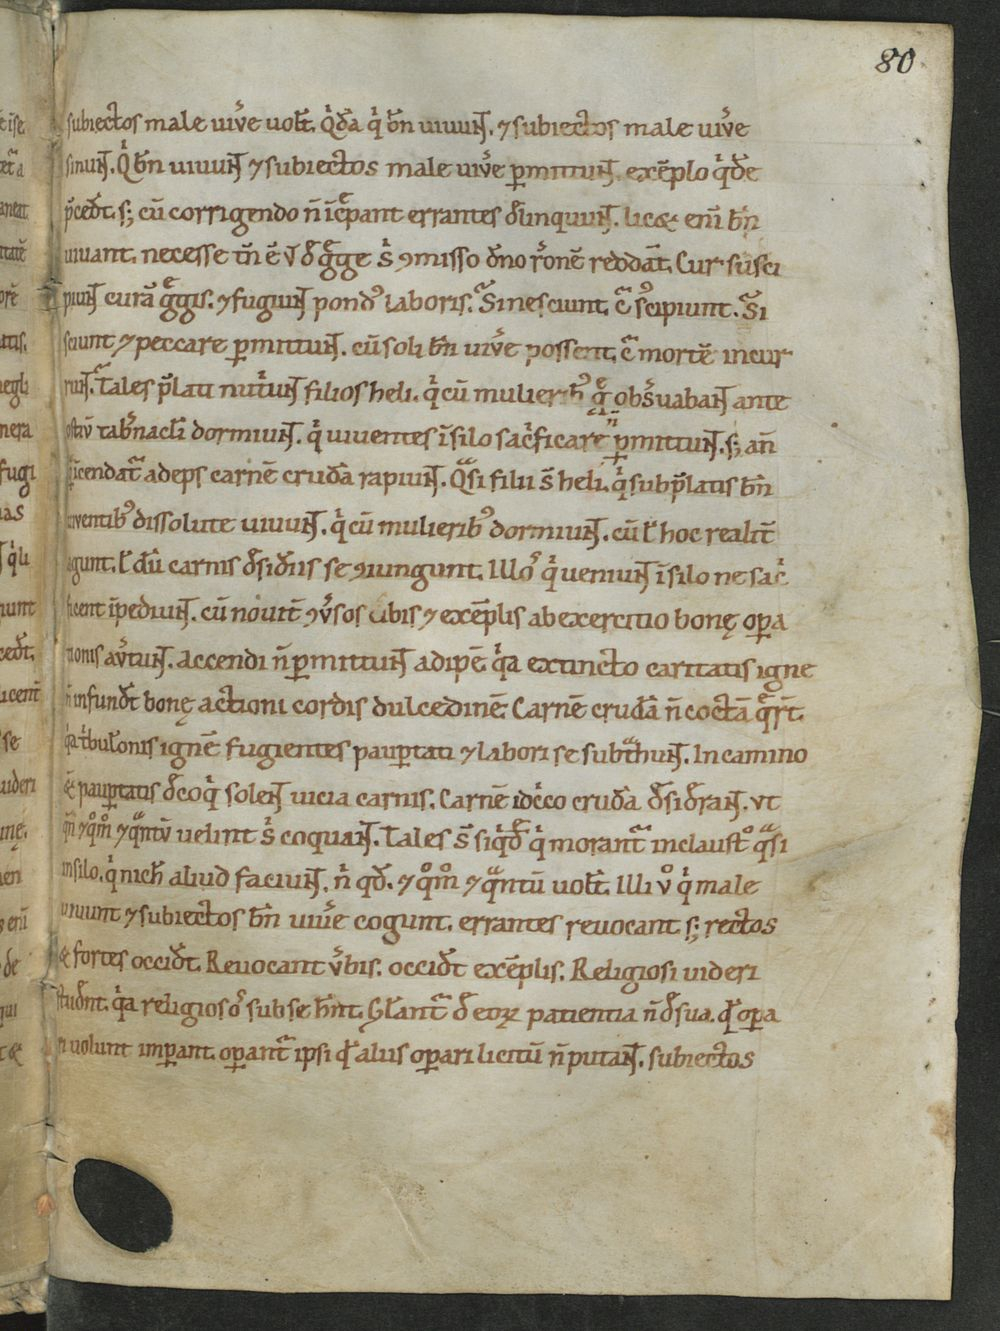 80
subiectos male uiu̾e uolt̄. Q̇dā q̇ bn̄ uiuuɴ̄t. ⁊ subiectos male uiu̾e
sinuɴt. Q̇ bn̄ uiuuɴt ⁊ subiectos male uiu̾e p̱mittuɴt. exēplo q̇dē
p̄cedt̄. s; cū corrigendo n̄ ic̄pant errantes d̄linquuɴt. lic& eni̅ bn̄
uiuant. necesse tn̄ ē ut̄ d̄ g̾ge ṡ ꝯmisso dn̄o r̄onē reddāt. Cur susci
piuɴt curā g̾gis. ⁊ fugiuɴt pond᷒ laboris. Si nesciunt. c̄ s᷒cipiunt. Si
sciunt ⁊ peccare p̱mittuɴt. cū soli bn̄ uiu̾e possent. c̄ mortē incur
ruɴt. Tales p̄lati nut̾uɴt filios heli. q̇ cū mulierib᷒ q̄ obs̾uabaɴt ante
ostiū tab̾nacl̄i dormiuɴt. q̇ uiuentes i̅ silo sac̾ficare n̄ p̱mittuɴt. s; an̄
q̄ incendat᷑ adeps carnē crudā rapiuɴt. Qᷓsi filii s̄ heli. q̇ sub p̄latis bn̄
uiuentib᷒ dissolute uiuuɴt. q̇ cū mulierib᷒ dormiuɴt. cū ł hoc realit̄
agunt. ł dū carnis d̄sid̄iis se ꝯiungunt. Illos᷒ q̇ ueniuɴt i̅ silo ne sac̾i
ficent i̅pediuɴt. cū nouit̄ ꝯu̾sos u̾bis ⁊ exēplis ab exercitio bonę op̱a
tionis au̾tuɴt. Accendi n̄ p̱mittuɴt adipē. q̇a extincto caritatis igne
n̄ infundt̄ bonę actioni cordis dulcedinē. Carnē crudā n̄ coctā q̄rt̄.
q̇a t̾bul̄onis ignē fugientes paup̱tati ⁊ labori se subtᷓhuɴt. In camino
&̄ paup̱tatis d̄coq̇ soleɴt uicia carnis. Carnē idc̾co crudā d̄sid̄raɴt. ut
qn̄ ⁊ qͦmͦ ⁊ qᷓntū uelint ṡ coquaɴt. Tales s̄ siqͥd̄ q̇ morant᷑ in claustͦ qᷓsi
in silo. q̇ nich̄ aliud faciuɴt. n̄ qd̄. ⁊ qͦmͦ ⁊ qᷓntū uolt̄. Illi uͦ q̇ male
uiuunt ⁊ subiectos bn̄ uiu̾e cogunt. errantes reuocant s; rectos
& fortes occidt̄. Reuocant u̾bis. occidt̄ exēplis. Religiosi uideri
studnt̄. q̇a religiosos᷒ sub se hn̄t. Gl̄ant᷑ d̄ eoꝝ patientia n̄ d̄ sua. qd̾ op̱a
ri uolunt imp̱ant. op̱ant᷑ ipsi qd̾ aliis op̱ari licitū n̄ putaɴt. subiectos